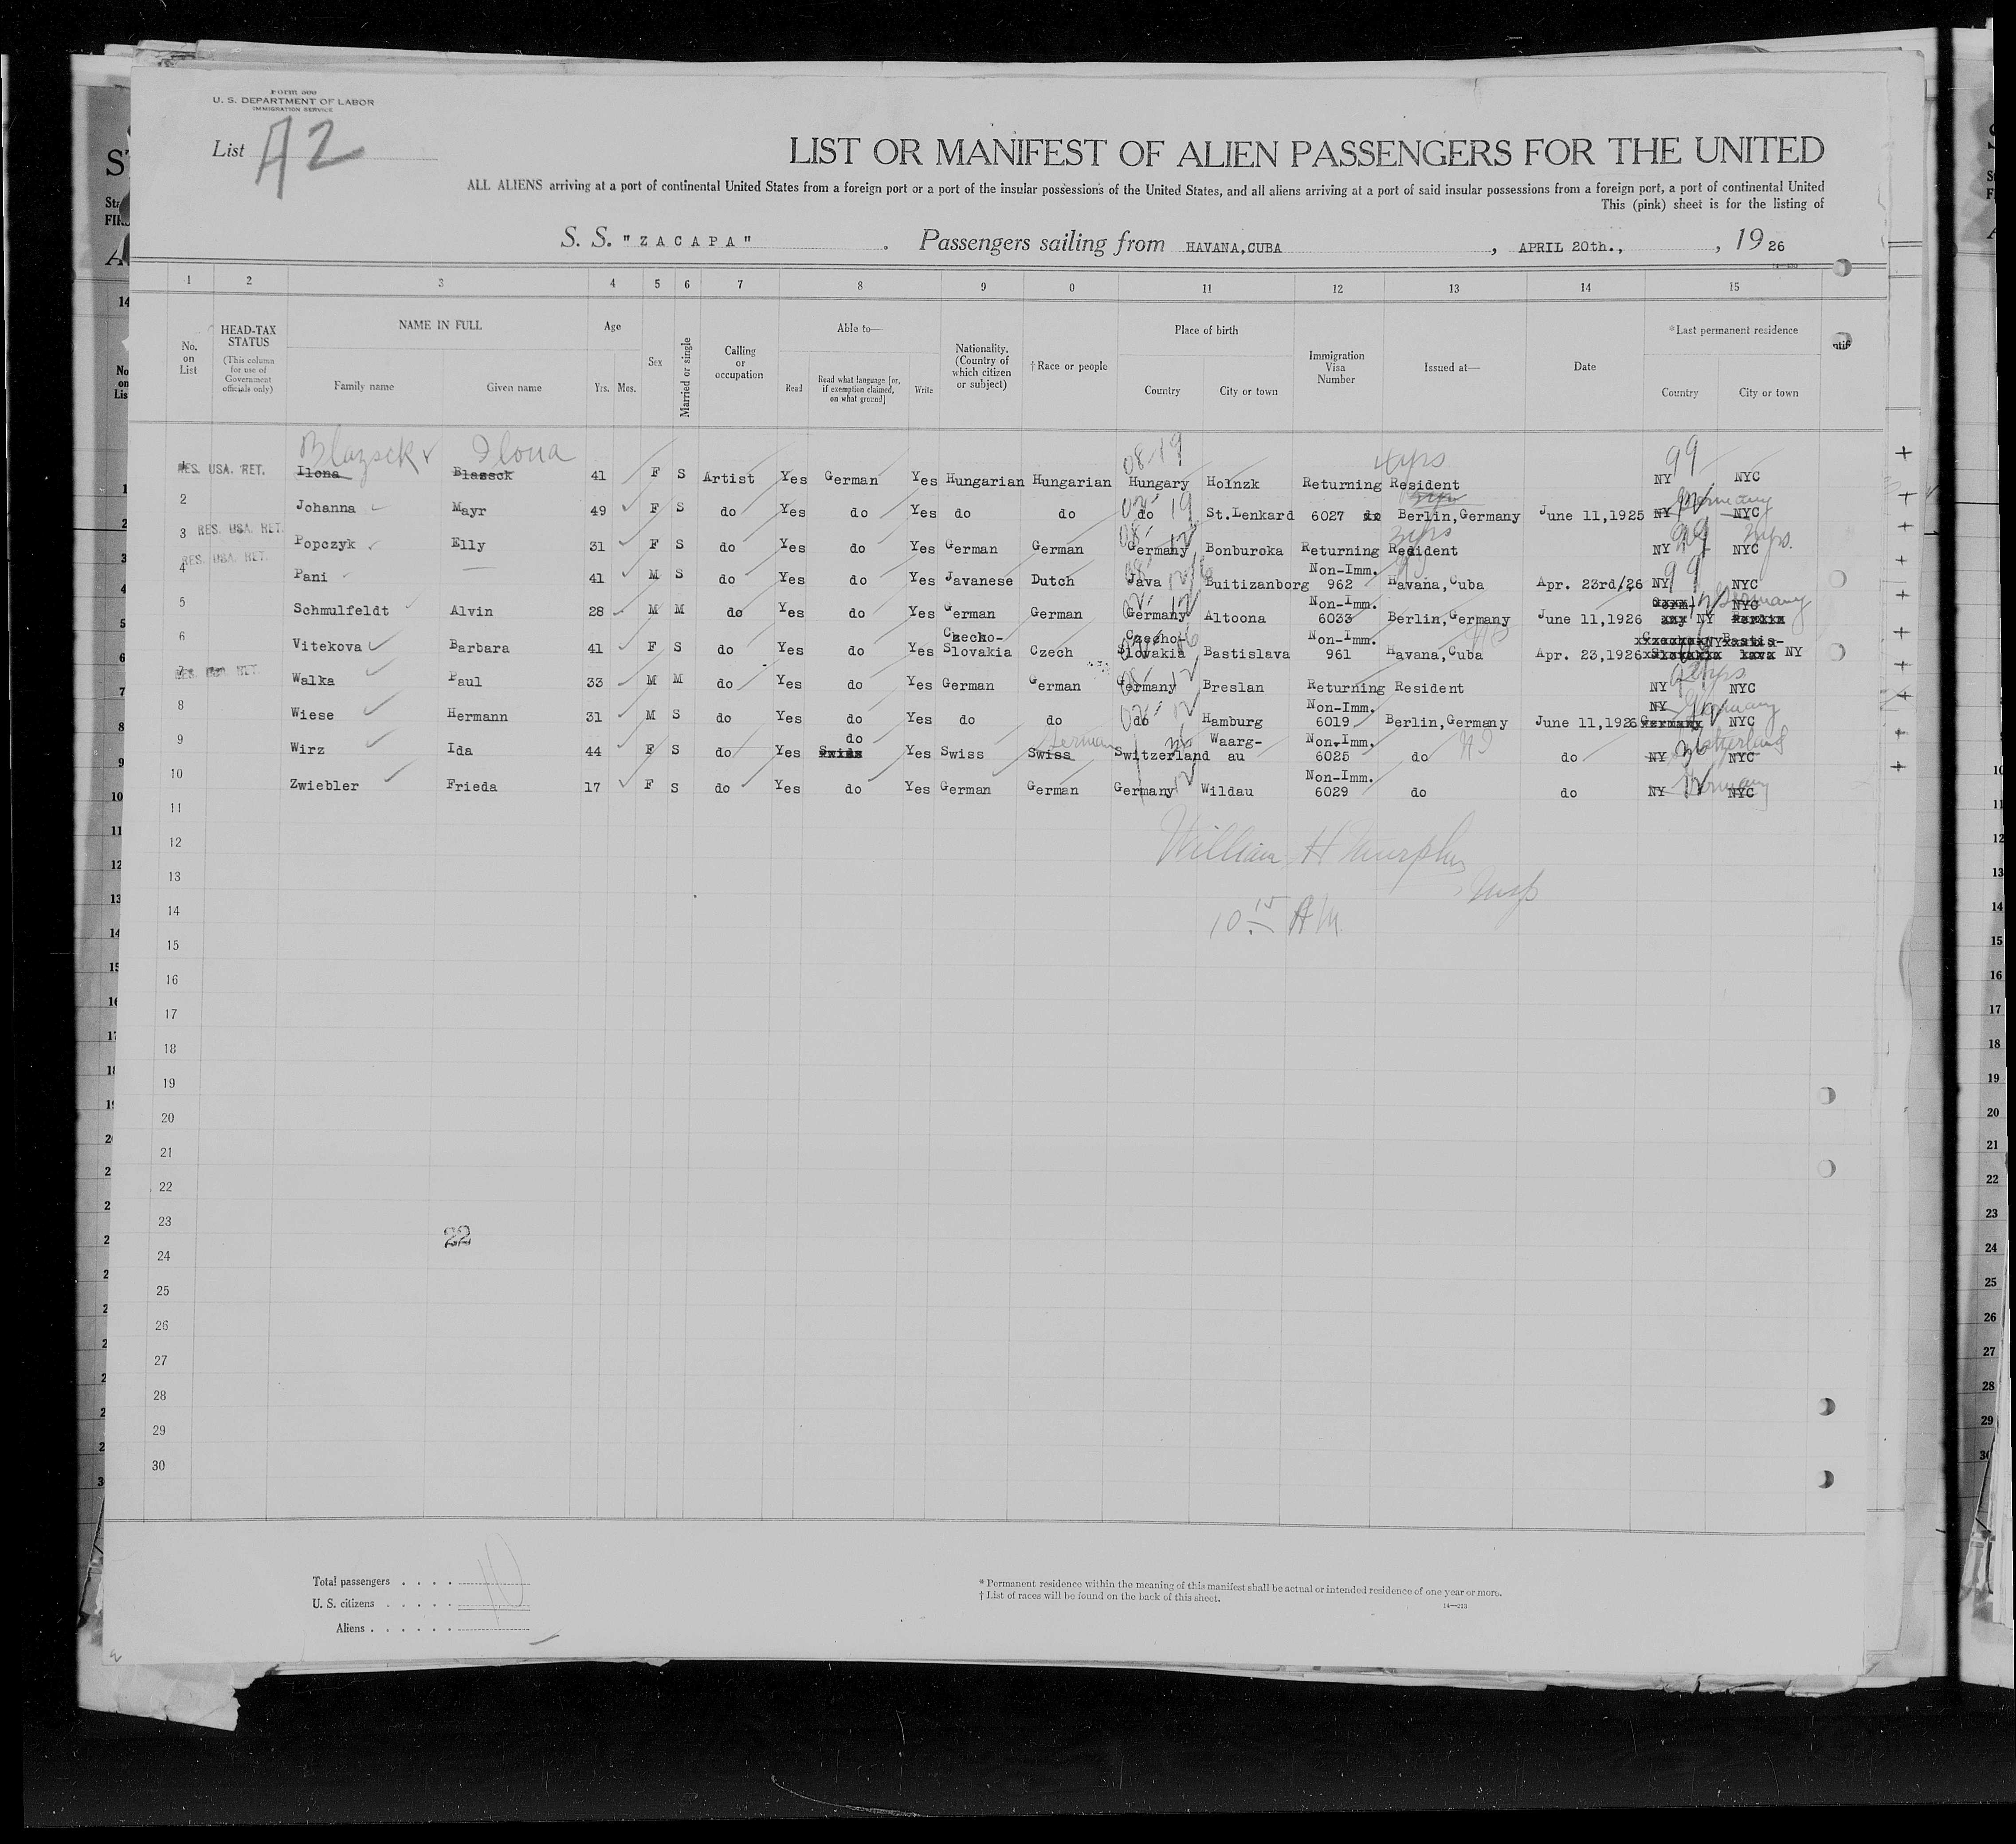 Form 500
U. S. DEPARTMENT OF LABOR
IMMIGRATION SERVICE
List A2
LIST OR MANIFEST OF ALIEN PASSENGERS FOR THE UNITED
ALL ALIENS arriving at a port of continental United States from a foreign port or a port of the insular possessions of the United States, and all aliens arriving at a port of said insular possessions from a foreign port, a port of continental United
This (pink) sheet is for the listing of
S. S. "ZACAPA" . Passengers sailing from HAVANA,CUBA , APRIL 20th., , 19 26
1 2 3 4 5 6 7 8 9 0 11 12 13 14 15
No. on List HEAD-TAX STATUS (This column for use of Government officials only) NAME IN FULL Family name Given name Age Yrs. Mos. Sex Married or single Calling or occupation Able to— Read Read what language [or, if exemption claimed, on what ground] Write Nationality. (Country of which citizen or subject) † Race or people Place of birth Country City or town Immigration Visa Number Issued at— Date *Last permanent residence Country City or town
Blazsck Ilona 0819 4yrs 99
RES. USA. RET. Ilona Blazsck 41 F S Artist Yes German Yes Hungarian Hungarian Hungary Holnzk Returning Resident NY NYC
2 Johanna Mayr 49 F S do Yes do Yes do do do St.Lenkard 6027 do Berlin,Germany June 11,1925 NY NYC Germany
3 RES. USA. RET. Popczyk Elly 31 F S do Yes do Yes German German Germany Bonburoka Returning Resident 3yrs NY NYC
4 RES. USA. RET. Pani 41 M S do Yes do Yes Javanese Dutch Java Buitizanborg Non-Imm. 962 Havana,Cuba Apr. 23rd/26 NY NYC
5 Schmulfeldt Alvin 28 M M do Yes do Yes German German Germany Altoona Non-Imm. 6033 Berlin,Germany June 11,1926 NY NYC Germany
6 Vitekova Barbara 41 F S do Yes do Yes Czecho-Slovakia Czech Czecho-Slovakia Bastislava Non-Imm. 961 Havana,Cuba Apr. 23,1926 NY
7 RES. USA. RET. Walka Paul 33 M M do Yes do Yes German German Germany Breslan Returning Resident NY NYC
8 Wiese Hermann 31 M S do Yes do Yes do do do Hamburg Non-Imm. 6019 Berlin,Germany June 11,1926 NY Germany NYC
9 Wirz Ida 44 F S do Yes do Swiss Yes Swiss Swiss German Switzerland Waarg-au Non-Imm. 6025 do do NY NYC
10 Zwiebler Frieda 17 F S do Yes do Yes German German Germany Wildau Non-Imm. 6029 do do NY NYC Germany
11
12 William H Murphy
13 Insp
14 10 15 AM
15
16
17
18
19
20
21
22
23
22
24
25
26
27
28
29
30
Total passengers . . . . 10
U. S. citizens . . . . .
Aliens . . . . . .
* Permanent residence within the meaning of this manifest shall be actual or intended residence of one year or more.
† List of races will be found on the back of this sheet.
14—213